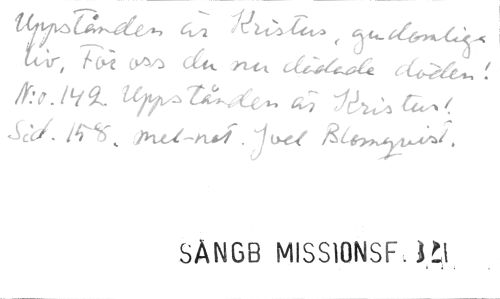 Uppstånden är Kristus, gudomliga
liv, För oss du nu dödade döden!
N:o. 142. Uppstånden är Kristus!
Sid. 158. mel-not. Joel Blomqvist.
SÅNGB MISSIONSF.